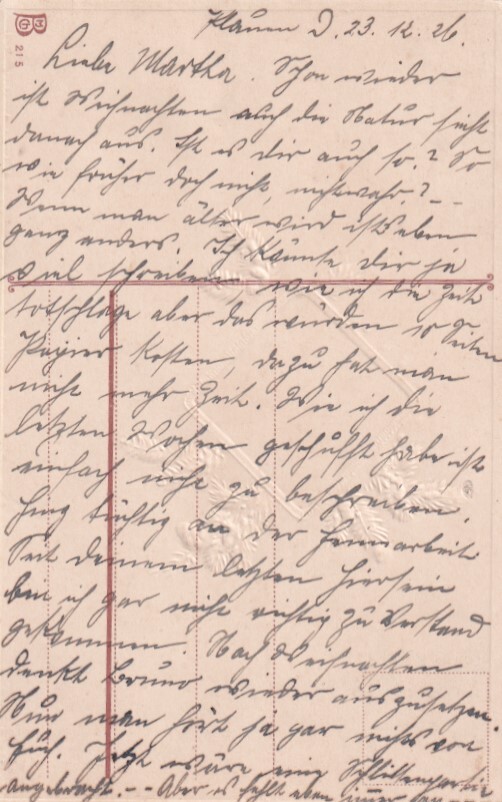 Plauen D. 23. 12. 26.
215
Liebe Martha. Schon wieder
ist Weihnachten auch die Natur sieht
danach aus. Ist es dir auch so? So
wie früher doch nicht, nichtwahr? --
Wenn man älter wird ists eben
ganz anders. Ich könnte dir ja
viel schreiben, wie ich die Zeit
totschlage aber das würden 10 Seiten
Papier kosten, dazu hat man
nicht mehr Zeit. Wie ich die
letzten Wochen geschufft habe ist
einfach nicht zu beschreiben.
tüchtig an der Heimarbeit.
Seit deinem letzten Hiersein
bin ich gar nicht richtig zu Verstand
gekommen. Nach Weihnachten
denkt Bruno wieder auszusetzen.
Nun man hört ja gar nichts von
Euch. Jetzt wäre eine Schlittenpartie
angebracht. -- Aber es fehlt eben immer